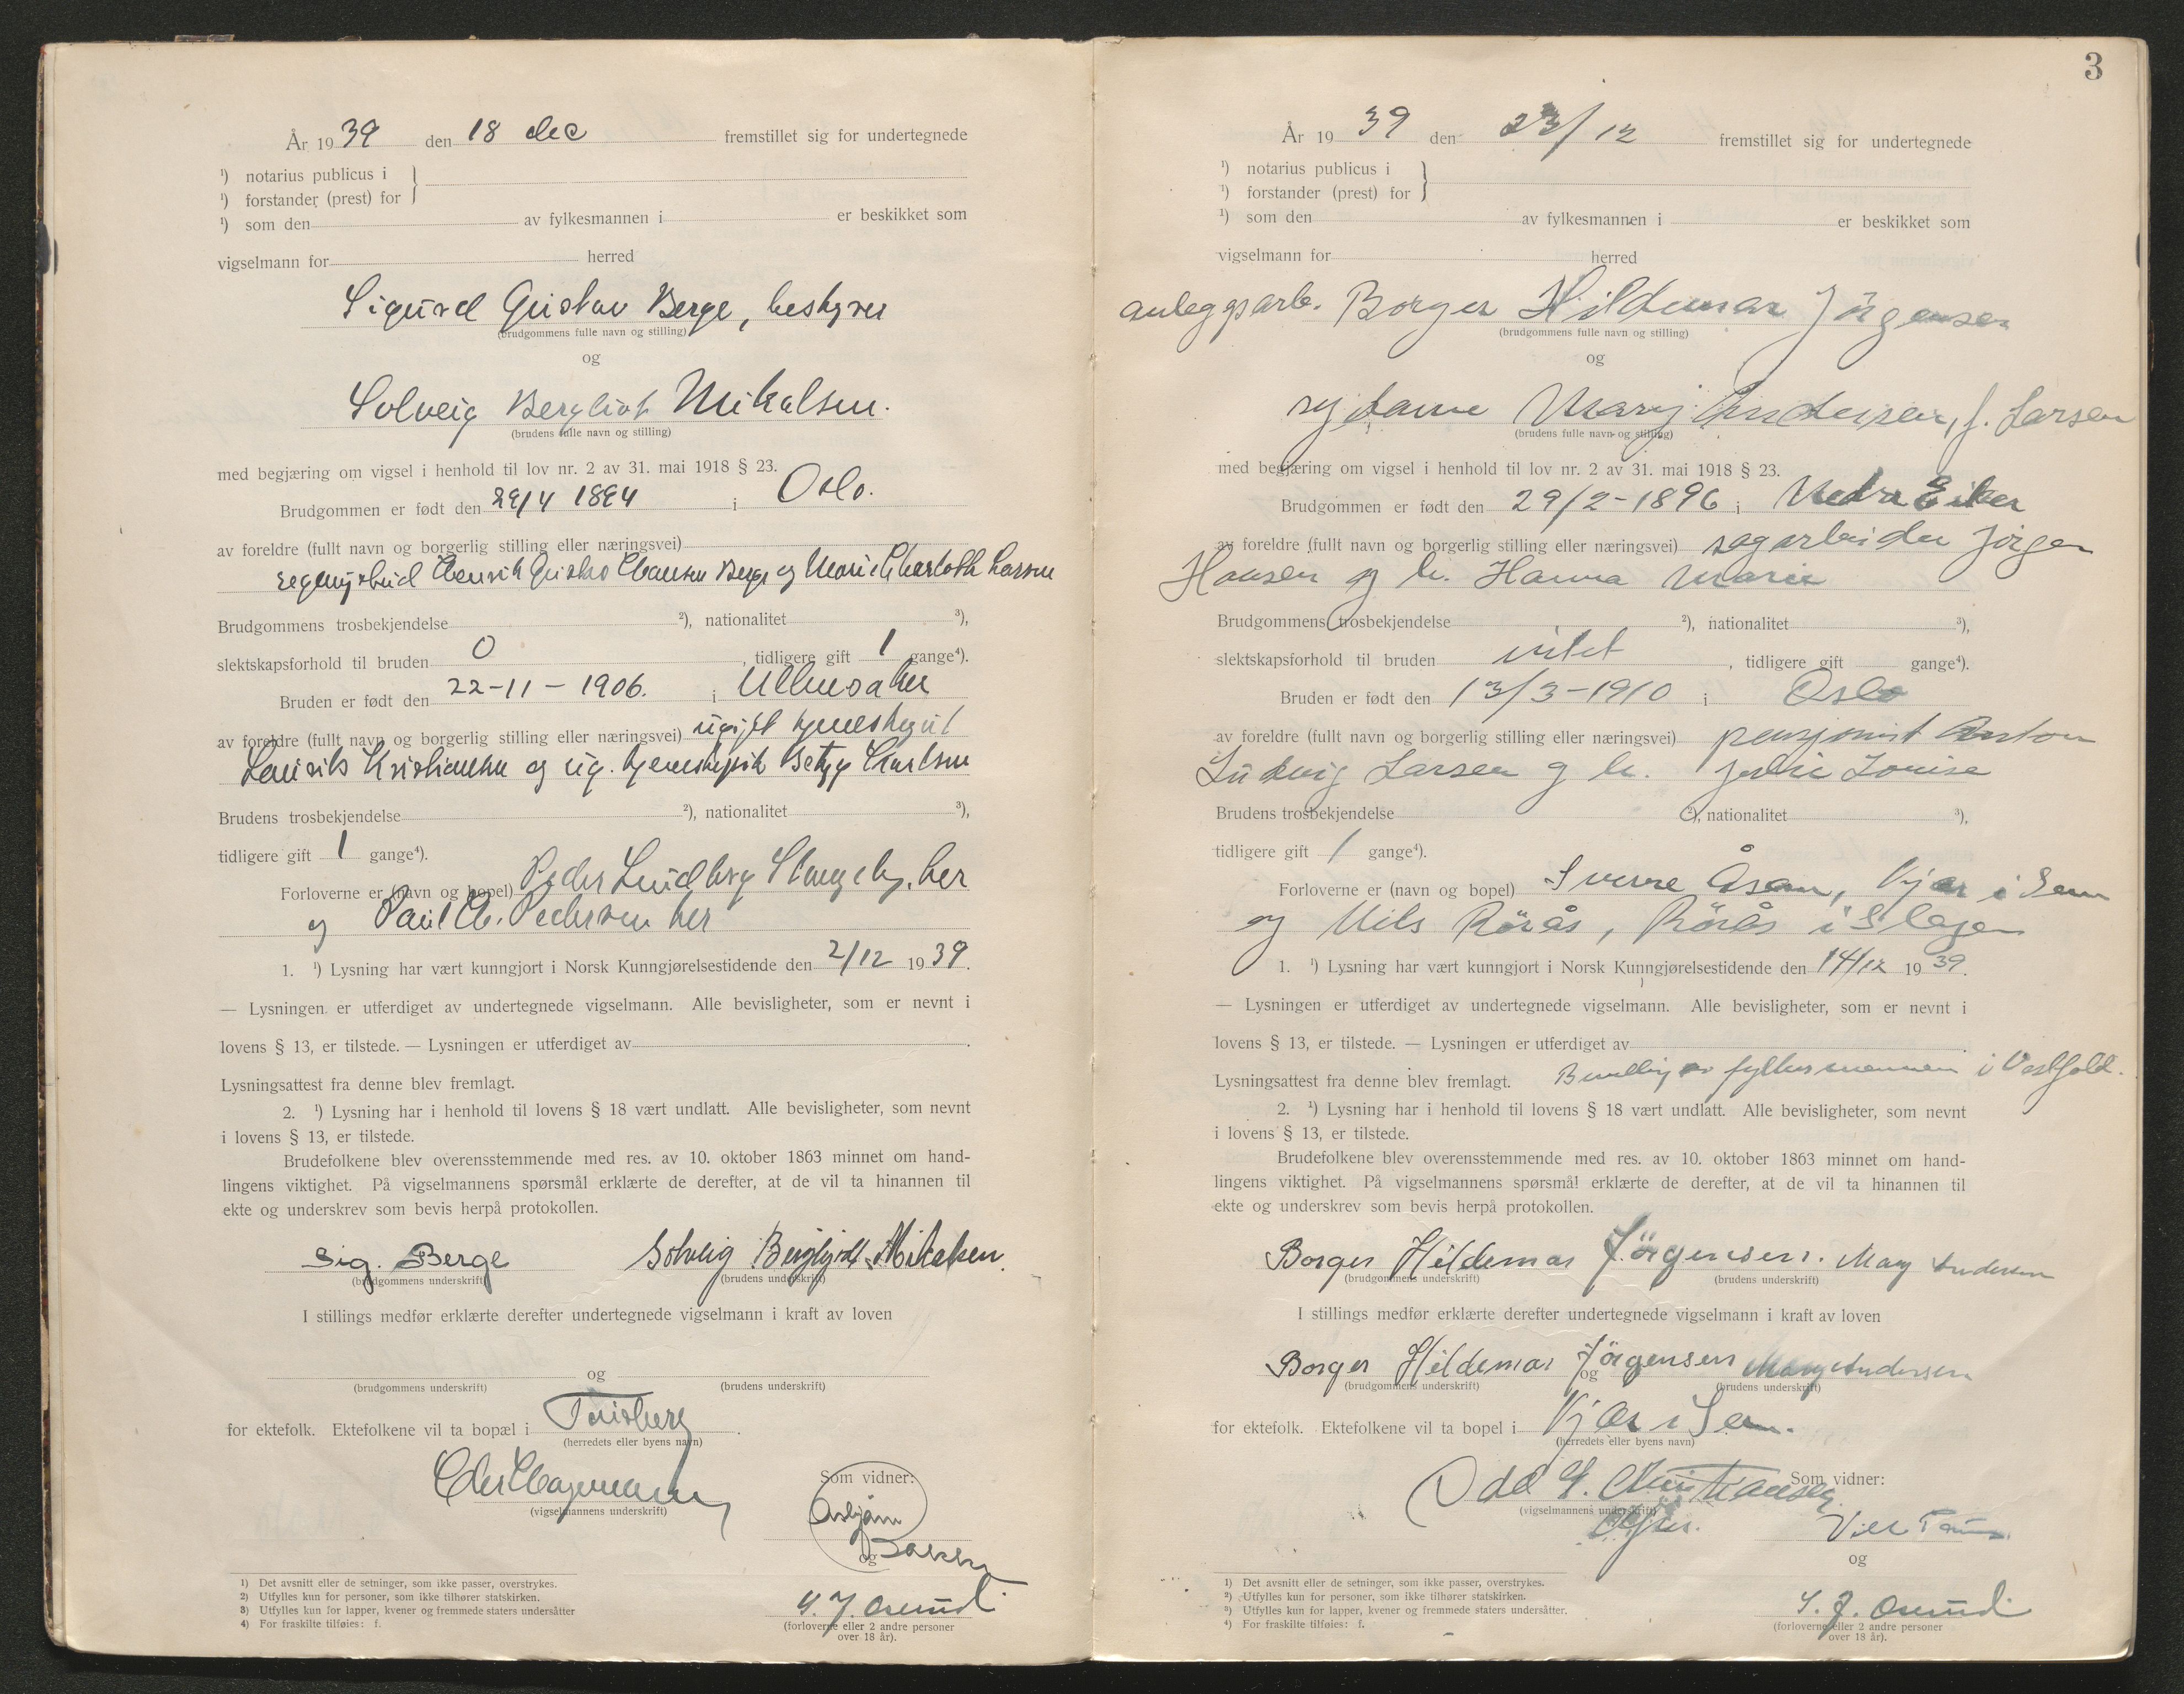 År 1939 den 18 dec fremstillet sig for undertegnede
¹) notarius publicus i
¹) forstander (prest) for
¹) som den av fylkesmannen i er beskikket som
vigselmann for herred
Sigurd Gustav Berge, bestyrer
(brudgommens fulle navn og stilling)
og
Solveig Bergliot Mikalsen.
(brudens fulle navn og stilling)
med begjæring om vigsel i henhold til lov nr. 2 av 31. mai 1918 § 23.
Brudgommen er født den 29/4 1894 i Oslo.
av foreldre (fullt navn og borgerlig stilling eller næringsvei)
Henrik Gustav Clausen Berge og Marie Charlotte Larsen
Brudgommens trosbekjendelse ²), nationalitet ³),
slektskapsforhold til bruden 0, tidligere gift 1 gange⁴).
Bruden er født den 22-11-1906. i Ullensaker
av foreldre (fullt navn og borgerlig stilling eller næringsvei) ugift
Laurits Kristiansen og ug. Betzy Carlsen
Brudens trosbekjendelse ²), nationalitet ³),
tidligere gift 1 gange⁴).
Forloverne er (navn og bopel) Peder Lindberg Stangeby, her
og Paul Chr. Pedersen her
1. ¹) Lysning har vært kunngjort i Norsk Kunngjørelsestidende den 2/12 1939.
— Lysningen er utferdiget av undertegnede vigselmann. Alle bevisligheter, som er nevnt i
lovens § 13, er tilstede. — Lysningen er utferdiget av .
Lysningsattest fra denne blev fremlagt.
2. ¹) Lysning har i henhold til lovens § 18 vært undlatt. Alle bevisligheter, som nevnt
i lovens § 13, er tilstede.
Brudefolkene blev overensstemmende med res. av 10. oktober 1863 minnet om hand-
lingens viktighet. På vigselmannens spørsmål erklærte de derefter, at de vil ta hinannen til
ekte og underskrev som bevis herpå protokollen.
Sig. Berge Solveig Bergliot Mikalsen.
(brudgommens underskrift) (brudens underskrift)
I stillings medfør erklærte derefter undertegnede vigselmann i kraft av loven
og
(brudgommens underskrift) (brudens underskrift)
for ektefolk. Ektefolkene vil ta bopæl i Tønsberg.
(herredets eller byens navn)
(vigselmannens underskrift)
Som vidner:
Asbjørn
og
(forloverne eller 2 andre personer
over 18 år).
1) Det avsnitt eller de setninger, som ikke passer, overstrykes.
2) Utfylles kun for personer, som ikke tilhører statskirken.
3) Utfylles kun for lapper, kvener og fremmede staters undersåtter
4) For fraskilte tilføies: f.
3
År 1939 den 23/12 fremstillet sig for undertegnede
¹) notarius publicus i
¹) forstander (prest) for
¹) som den av fylkesmannen i er beskikket som
vigselmann for herred
anleggsarb. Borger Hildemar Jörgensen
(brudgommens fulle navn og stilling)
og
sydame Mary Andersen, f. Larsen
(brudens fulle navn og stilling)
med begjæring om vigsel i henhold til lov nr. 2 av 31. mai 1918 § 23.
Brudgommen er født den 29/2-1896 i Nedre Eiker
av foreldre (fullt navn og borgerlig stilling eller næringsvei) sagarbeider Jörgen
Hansen og h. Hanna Marie
Brudgommens trosbekjendelse ²), nationalitet ³),
slektskapsforhold til bruden intet, tidligere gift gange⁴).
Bruden er født den 13/3-1910 i Oslo
av foreldre (fullt navn og borgerlig stilling eller næringsvei) pensjonist Anton
Ludvig Larsen og h. Julie Louise
Brudens trosbekjendelse ²), nationalitet ³),
tidligere gift 1 gange⁴).
Forloverne er (navn og bopel) Sverre Åsen, Kjær i Sem
og Nils Rörås, Rörås i Slagen
1. ¹) Lysning har vært kunngjort i Norsk Kunngjørelsestidende den 14/12 1939.
— Lysningen er utferdiget av undertegnede vigselmann. Alle bevisligheter, som er nevnt i
lovens § 13, er tilstede. — Lysningen er utferdiget av .
Lysningsattest fra denne blev fremlagt. fylkesmannen i Vestfold.
2. ¹) Lysning har i henhold til lovens § 18 vært undlatt. Alle bevisligheter, som nevnt
i lovens § 13, er tilstede.
Brudefolkene blev overensstemmende med res. av 10. oktober 1863 minnet om hand-
lingens viktighet. På vigselmannens spørsmål erklærte de derefter, at de vil ta hinannen til
ekte og underskrev som bevis herpå protokollen.
Borger Hildemar Jörgensen. Mary Andersen
(brudgommens underskrift) (brudens underskrift)
I stillings medfør erklærte derefter undertegnede vigselmann i kraft av loven
Borger Hildemar Jörgensen og Mary Andersen
(brudgommens underskrift) (brudens underskrift)
for ektefolk. Ektefolkene vil ta bopel i Kjær i Sem.
(herredets eller byens navn)
Odd G. Christiansen
(vigselmannens underskrift)
Som vidner:
og
(forloverne eller 2 andre personer
over 18 år).
1) Det avsnitt eller de setninger, som ikke passer, overstrykes.
2) Utfylles kun for personer, som ikke tilhører statskirken.
3) Utfylles kun for lapper, kvener og fremmede staters undersåtter.
4) For fraskilte tilføies: f.